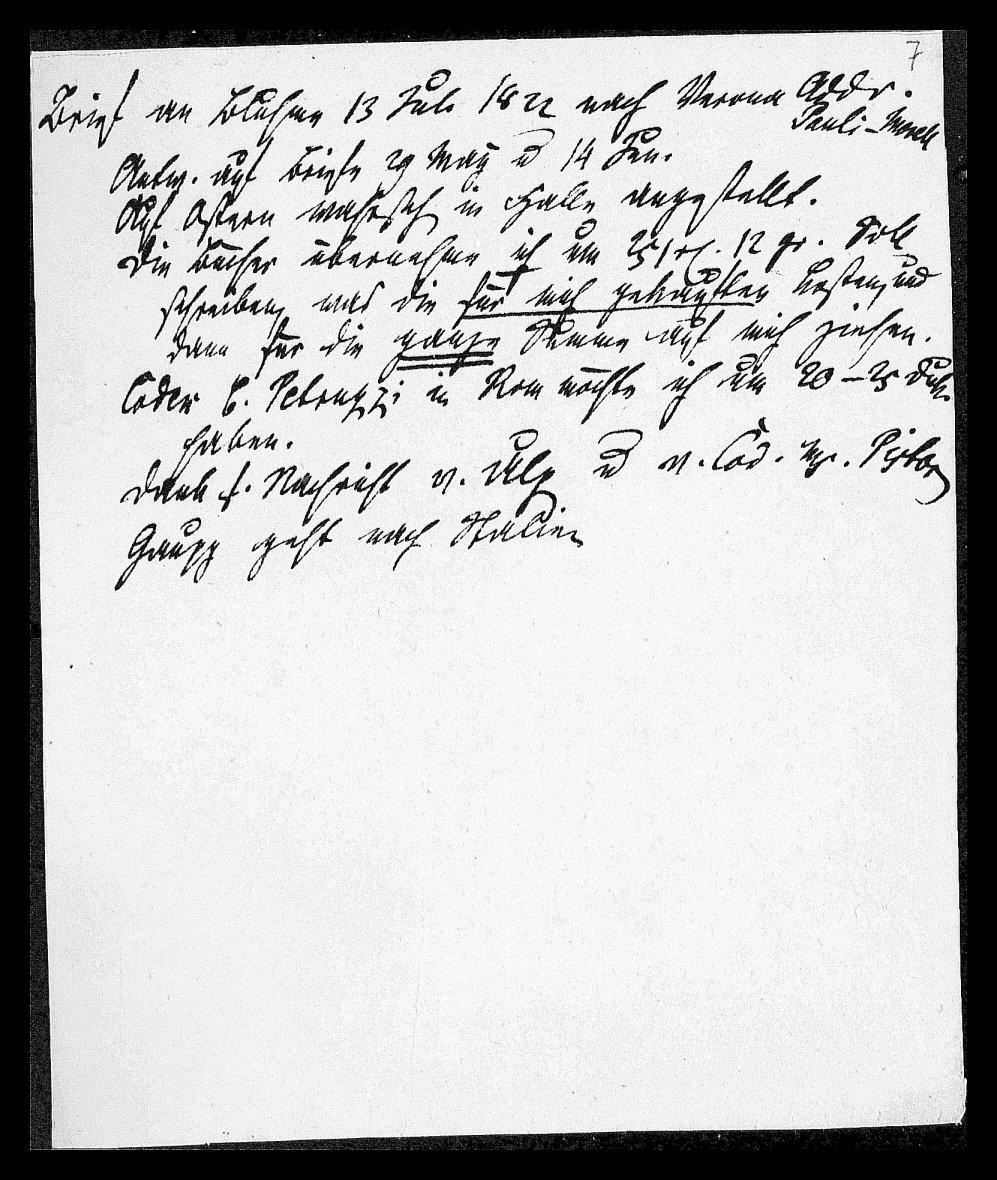 7
Brief an Bluhme 13 Jul. 1822 nach Verona Addr.
Pauli-
Antw. auf Briefe 29 May u 14 Jun.
Auf Ostern wahrsch. in Halle angestellt.
Die Bücher übernehme ich um 12 gr. Soll
schreiben, was die für mich gekauften kosten, und
dann für die ganze Summe auf mich ziehen.
Codex b. Petruzzi in Rom möchte ich um 20–25 Duk.
haben.
Dank f. Nachricht v. Ulp u v. Cod. Pistor
Gaupp geht nach Italien